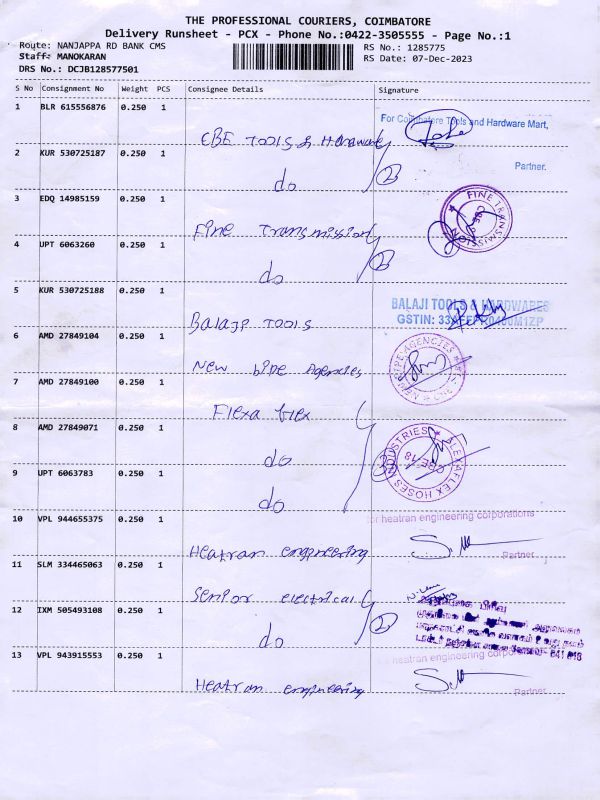 THE PROFESSIONAL COURIERS, COIMBATORE
Delivery Runsheet - PCX - Phone No.:0422-3505555 - Page No.:1
Route: NANJAPPA RD BANK CMS
RS No.: 1285775
Staff: MANOKARAN
RS Date: 07-Dec-2023
DRS No.: DCJB128577501
S No Consignment No Weight PCS Consignee Details Signature
1 BLR 615556876 0.250 1
For Coimbatore Tools and Hardware Mart,
CBE TOOLS & Hardware
2 KUR 530725187 0.250 1
Partner.
do
2
3 EDQ 14985159 0.250 1
FINE TRANSMISSION
CBE
Fine Transmission
4 UPT 6063260 0.250 1
do
2
5 KUR 530725188 0.250 1
BALAJI TOOLS & HARDWARES
GSTIN:
Balaji TOOLS
6 AMD 27849104 0.250 1
NEW PIPE AGENCIES
New pipe Agencies
7 AMD 27849100 0.250 1
Flexa flex
8 AMD 27849071 0.250 1
FLEXAFLEX HOSES INDUSTRIES
CBE-18
do
3
9 UPT 6063783 0.250 1
do
10 VPL 944655375 0.250 1
for heatran engineering corporations
Heatran engineering
Partner
11 SLM 334465063 0.250 1
Senior electrical
12 IXM 505493108 0.250 1
do
2
641 018
13 VPL 943915553 0.250 1
heatran engineering
Heatran engineering
Partner